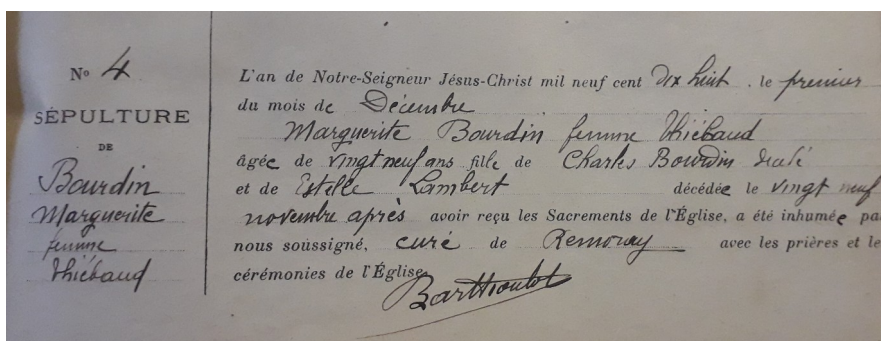 No 4
SÉPULTURE
DE
Bourdin
Marguerite
femme
Thiébaud
L'an de Notre-Seigneur Jésus-Christ mil neuf cent dix huit, le premier
du mois de Décembre
Marguerite Bourdin femme Thiébaud
âgée de vingt neuf ans fille de Charles Bourdin décédé
et de Estelle Lambert décédée le vingt neuf
novembre après avoir reçu les Sacrements de l'Église, a été inhumée pa
nous soussigné, curé de Remoray avec les prières et le
cérémonies de l'Église
Barthoulot